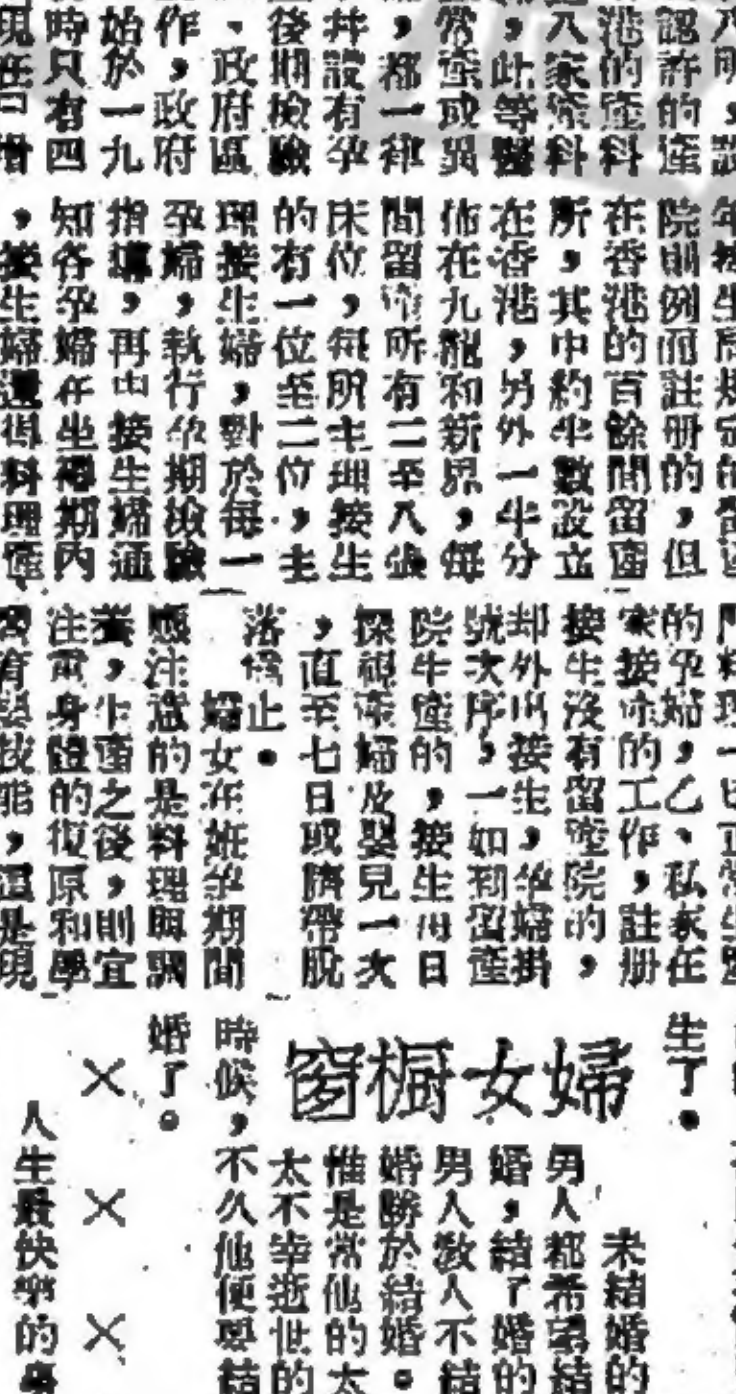 八所，設
認許的產
港的產科
八家產科
，此等醫
常產或異
，都一律
并設有孕
後期檢驗
、政府區
作，政府
始於一九
時只有四
現在已增
院則例而註册的，但
在香港的百餘間留產
所，其中約半數設立
在香港，另外一半分
佈在九龍和新界，每
間留產所有二至八張
床位，每所主理接生
的有一位至二位，主
理接生婦，對於每一
孕婦，執行孕期檢驗
指導，再由接生婦通
知各孕婦在坐褥期內
，接生婦還得料理產
的孕婦，乙、私家在
家接生的工作，註册
接生沒有留產院的，
却外出接生，孕婦掛
號次序，一如到留產
院生產的，接生每日
探視產婦及嬰兒一次
，直至七日取臍帶脫
落為止。
婦女在姙孕期間
應注意的是料理與調
養，生產之後，則宜
注重身體的復原和學
生了。
婦女橱窗
未結婚的
男人都希望結
婚，結了婚的
男人教人不結
婚勝於結婚。
惟是當他的太
太不幸逝世的
時候，不久他便要結
婚了。
× × ×
人生最快樂的